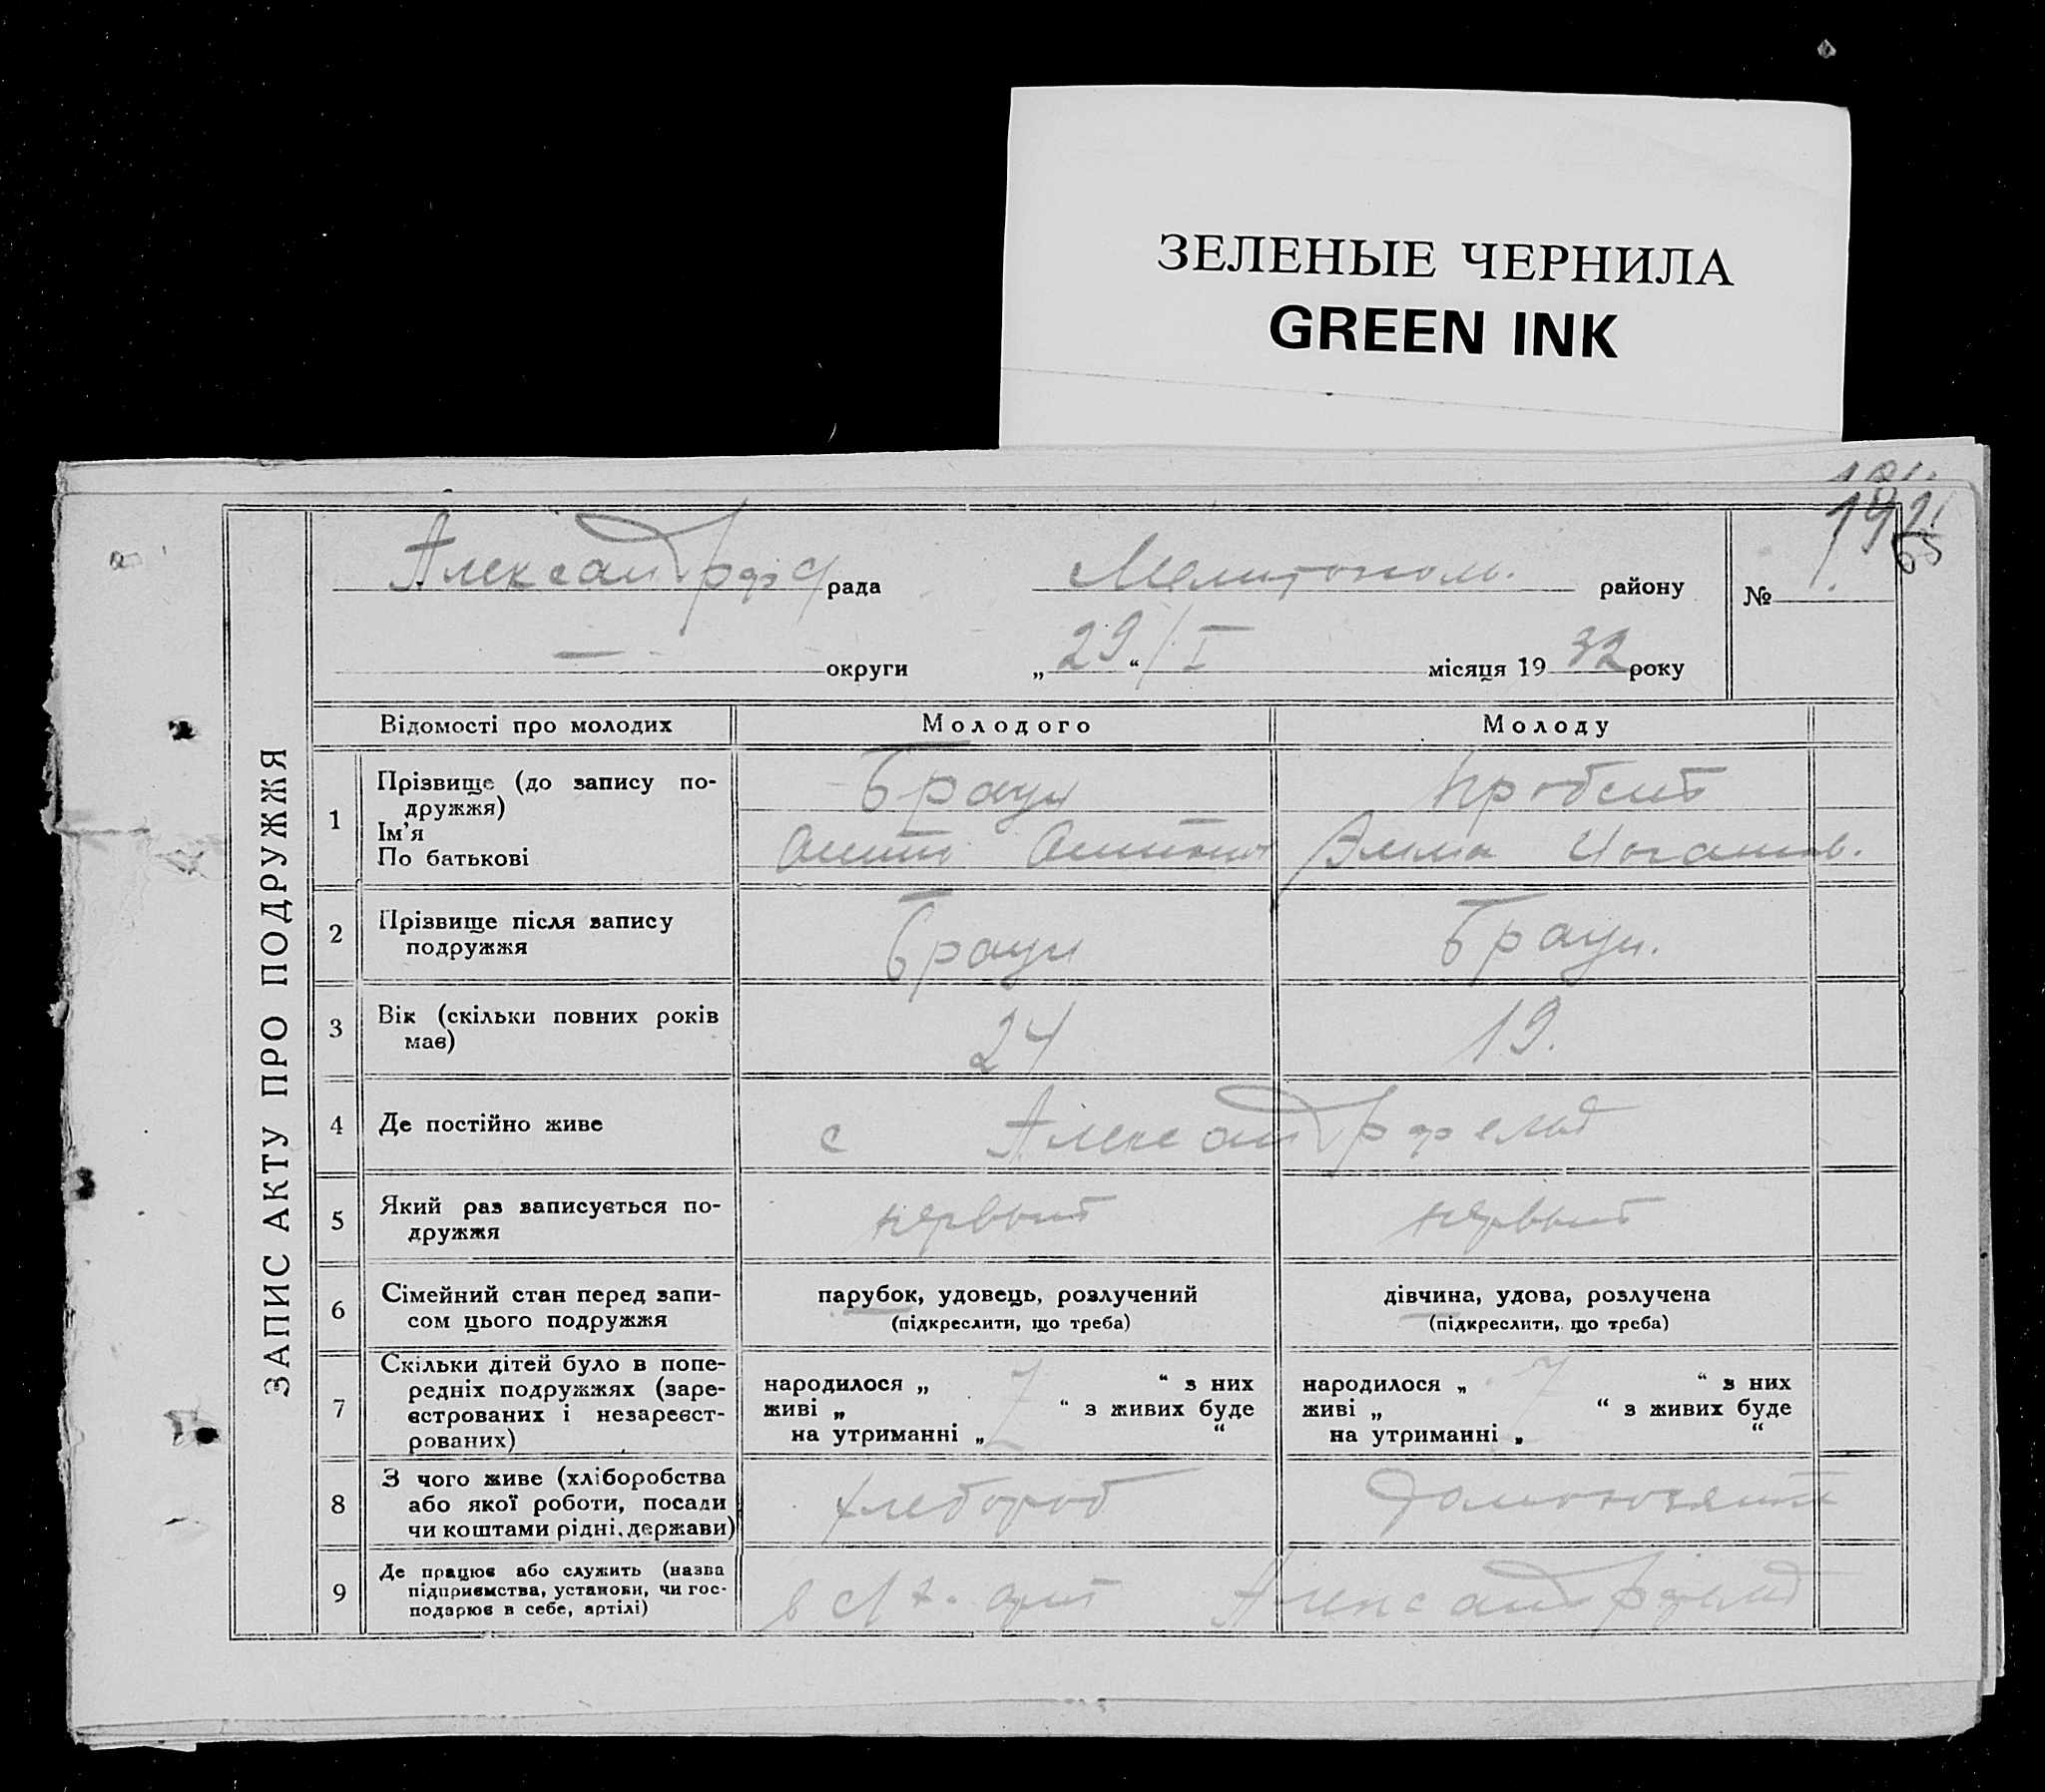 ЗЕЛЕНЫЕ ЧЕРНИЛА
GREEN INK
ЗАПИС АКТУ ПРО ПОДРУЖЖЯ
Александрф рада Мелитопол. району № 1.
— округи „29“/I місяця 1932 року
Відомості про молодих Молодого Молоду
1 Прізвище (до запису по-
дружжя)
Браун
Ім'я
По батькові
Антон Антонов Элла Иоганов.
2 Прізвище після запису
подружжя
Браун Браун.
3 Вік (скільки повних років
має)
24 19.
4 Де постійно живе с Александрфельд
5 Який раз записується по-
дружжя
первый первый
6 Сімейний стан перед запи-
сом цього подружжя
парубок, удовець, розлучений
(підкреслити, що треба)
дівчина, удова, розлучена
(підкреслити, що треба)
7 Скільки дітей було в попе-
редніх подружжях (заре-
єстрованих і незареєст-
рованих)
народилося „ “ з них
живі „ “ з живих буде
на утриманні „ “
народилося „ “ з них
живі „ “ з живих буде
на утриманні „ “
8 З чого живе (хліборобства
або якої роботи, посади
чи коштами рідні, держави)
хлебороб
9 Де працює або служить (назва
підприємства, установи, чи гос-
подарює в себе, артілі)
в с/х. арт Александрфельд